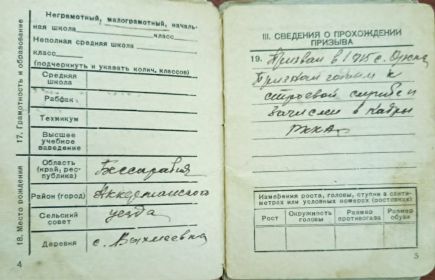 Неграмотный, малограмотный, началь-
ная школа класс
Неполная средняя школа
класс
(подчеркнуть и указать колич. классов)
17. Грамотность и образование
Средняя
школа
Рабфак
Техникум
Высшее
учебное
заведение
18. Место рождения
Область
(край, рес-
публика)
Бессарабия
Район (город)
Аккерманского
Сельский
совет
уезда
Деревня
с.
4
III. СВЕДЕНИЯ О ПРОХОЖДЕНИИ
ПРИЗЫВА
19. Призван в
Признан годным к
строевой службе и
зачислен в кадры
РККА
Измерения роста, головы, ступни в санти-
метрах или условных номерах (ростовках)
Рост
Окружность
головы
Размер
противогаза
Размер
обуви
5